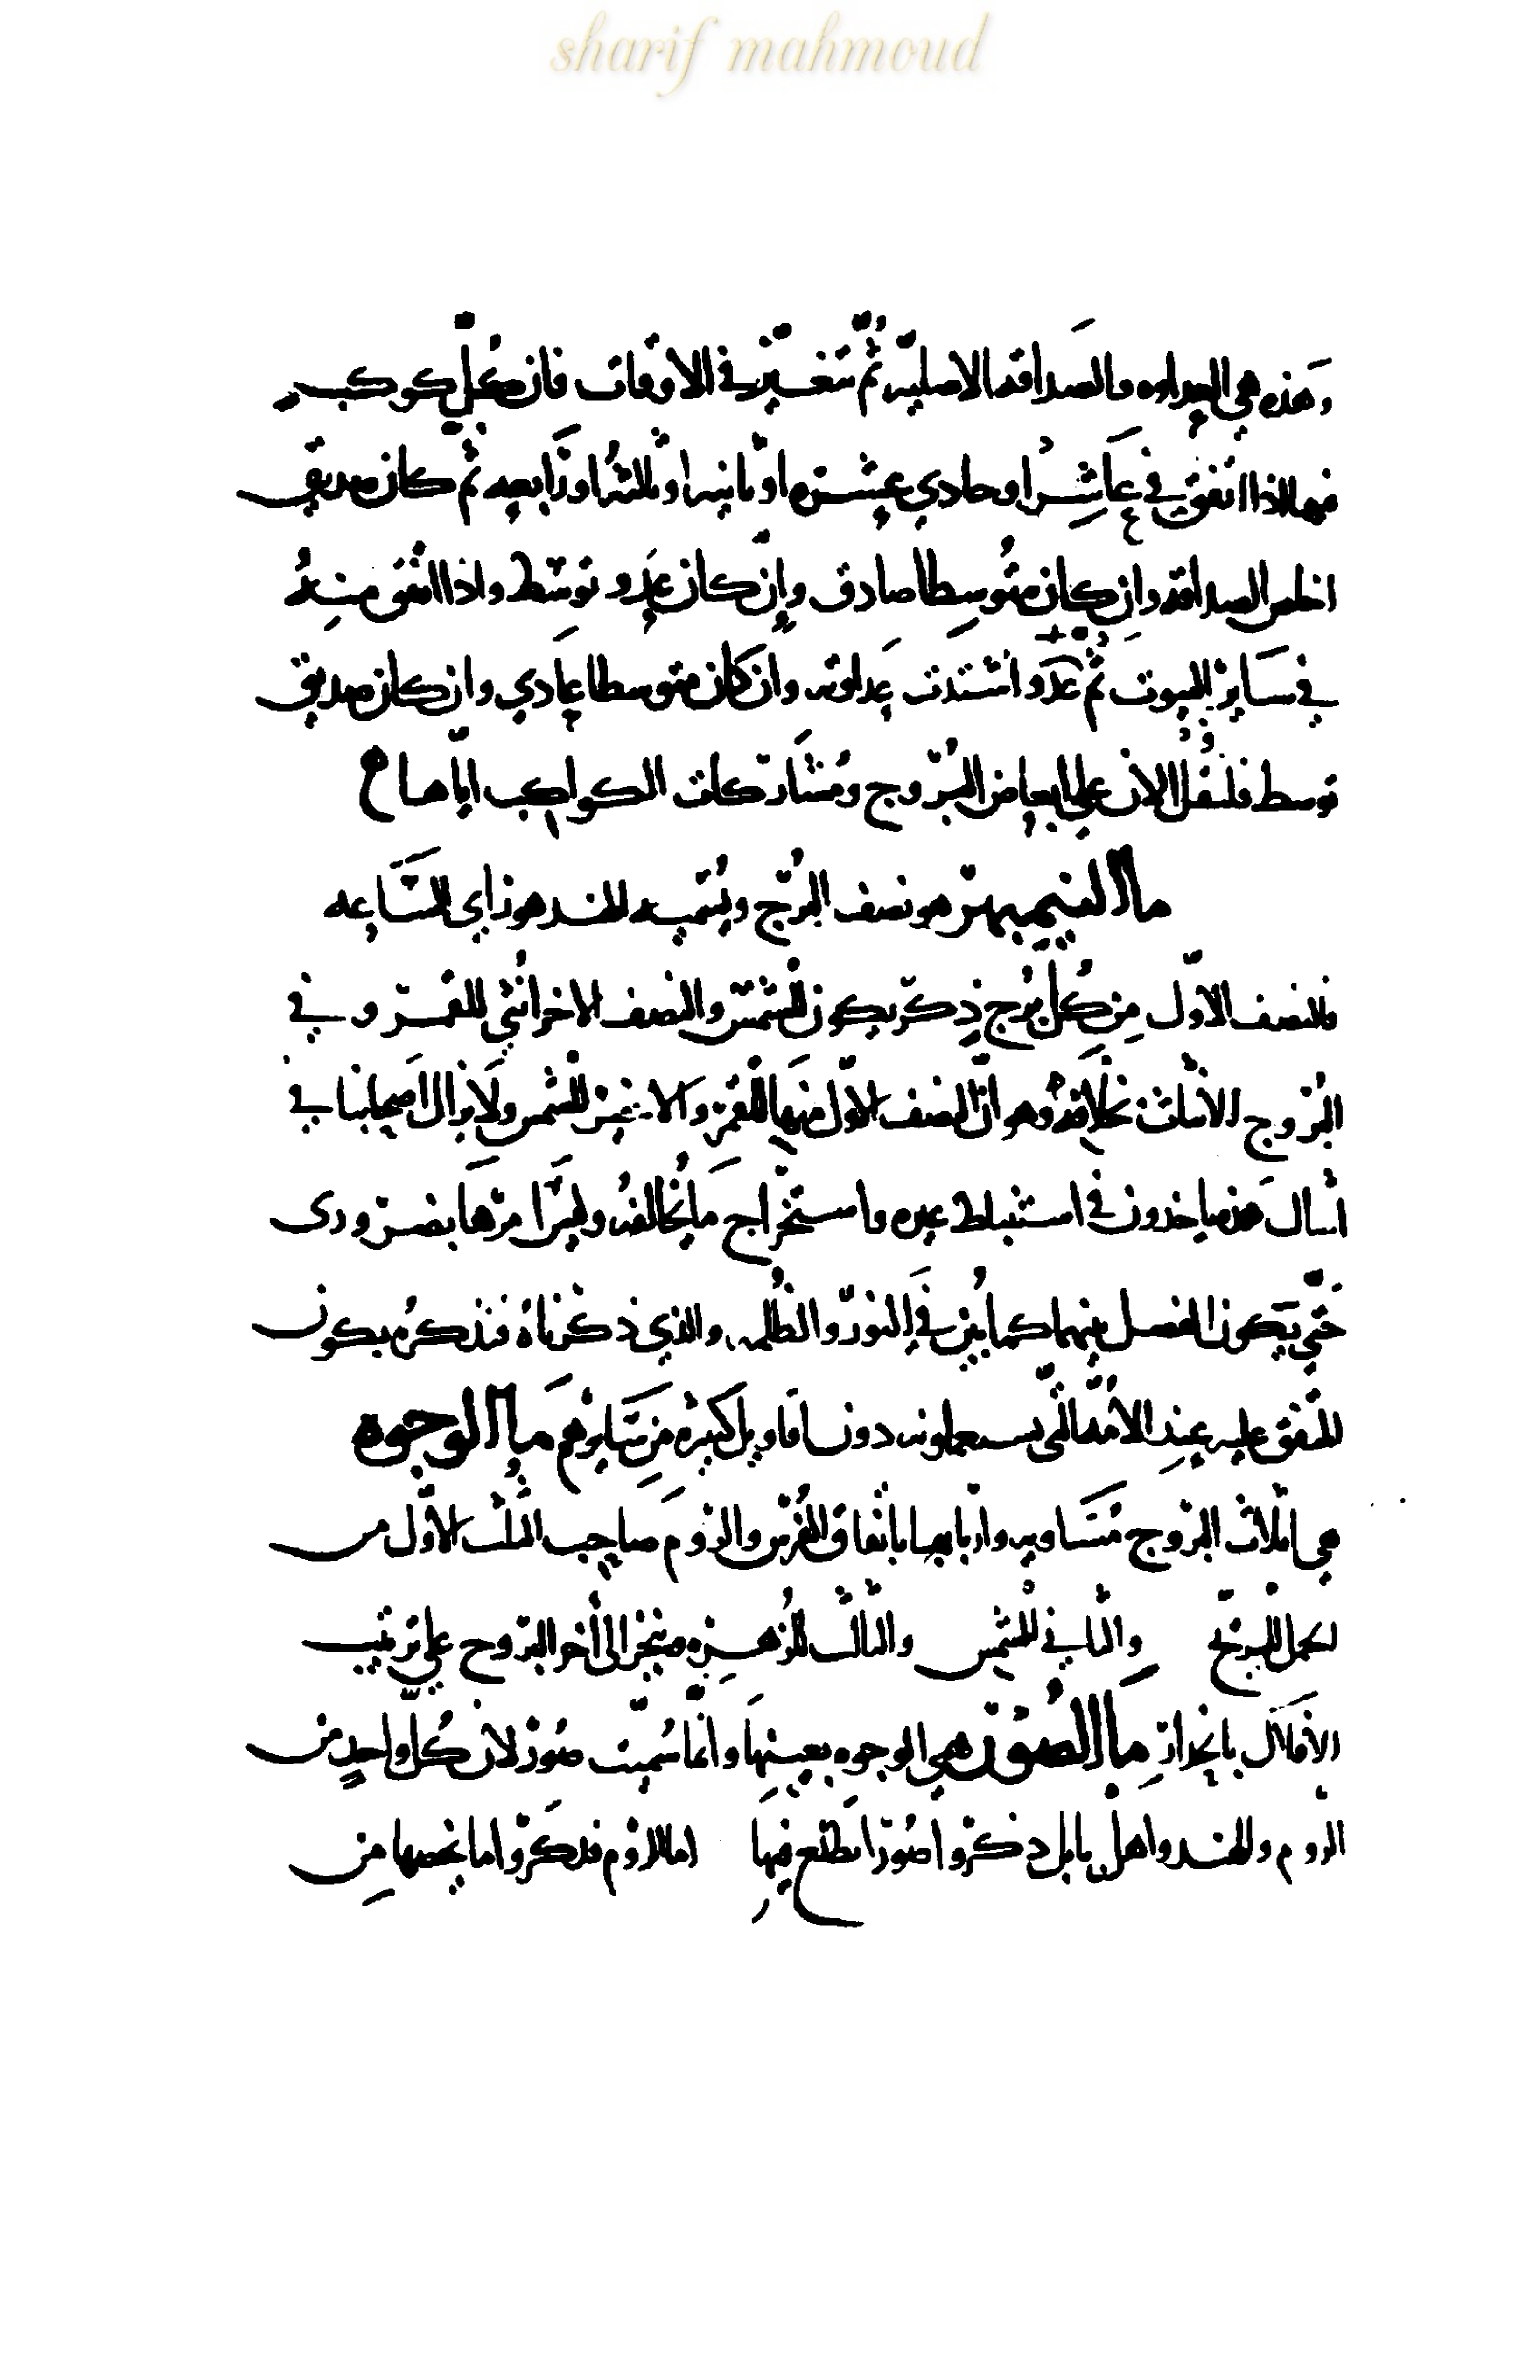 sharif mahmoud
وَهذه هي العداوه والصداقه الاصليّه ثُمّ تتغيّر في الاوقات فان كُلّ كوكب
منها اذا اتفق في عَاشِرِ او حادي عشره او ثانيه او ثالثه او رَابعه ثم كان صديق
اخلص الصداقه وان كان متُوسِطا صادق وإن كان عَدو توسّط واذا اتفق منِهُ
في سَاير البيوت ثُم عَدّو اشتدت عَداوته وان كان متوسطا عادي وان كان صديق
توسط فلنقُل الان على ابعاض البُروج ومُشَاركات الكواكب ايّاها
ما النيمبهر هو نصف البُرج ويُسَميه الهند هور اي السَّاعه
فالنصف الاوّل مِن كُل بُرج ذِكر يكون للشمس والنصف الاخر انُثي للقمر وفي
البُروج الاناث بخلافهُ وهو انّ النصف الاوّل منِها للقَمر والاخير للشمس ولَا يزال اصحابنا في
امثال هَذه ياخذون في استنباط غيره واستخراج مَا يُخالفهُ وليَسَ امرهَا بضروري
حَتّي يَكون الفصل بينهما كمَا بُين في النور والظُلمه والذي ذكرناهُ ونذكرهُ يكون
المتفق عليه عِند الامُّه التّي يستعملونه دون اقاويل كثيره مِن سَايرهم مَا الوجوه
هي اثلاث البروج مُتسَاويه واربابها باتفاق الفُرس والروم صاحِب الثُلث الاوّل من
الحمل المريخ والثاني للشمس والثالث للزُهره منجر الى اخر البروح علي ترتيب
الافلاك بانحدار مَا الصُور هي الوجوه بعينِهَا وانّما سُمّيت صُور لان كُل واحدٍ من
الروم والهند واهل بابل ذكروا صُورا تطلع فيهَا اما الروم فذكَروا ما يخصها مِن